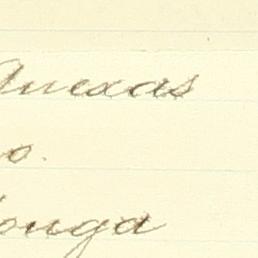 anexas
o.
onga